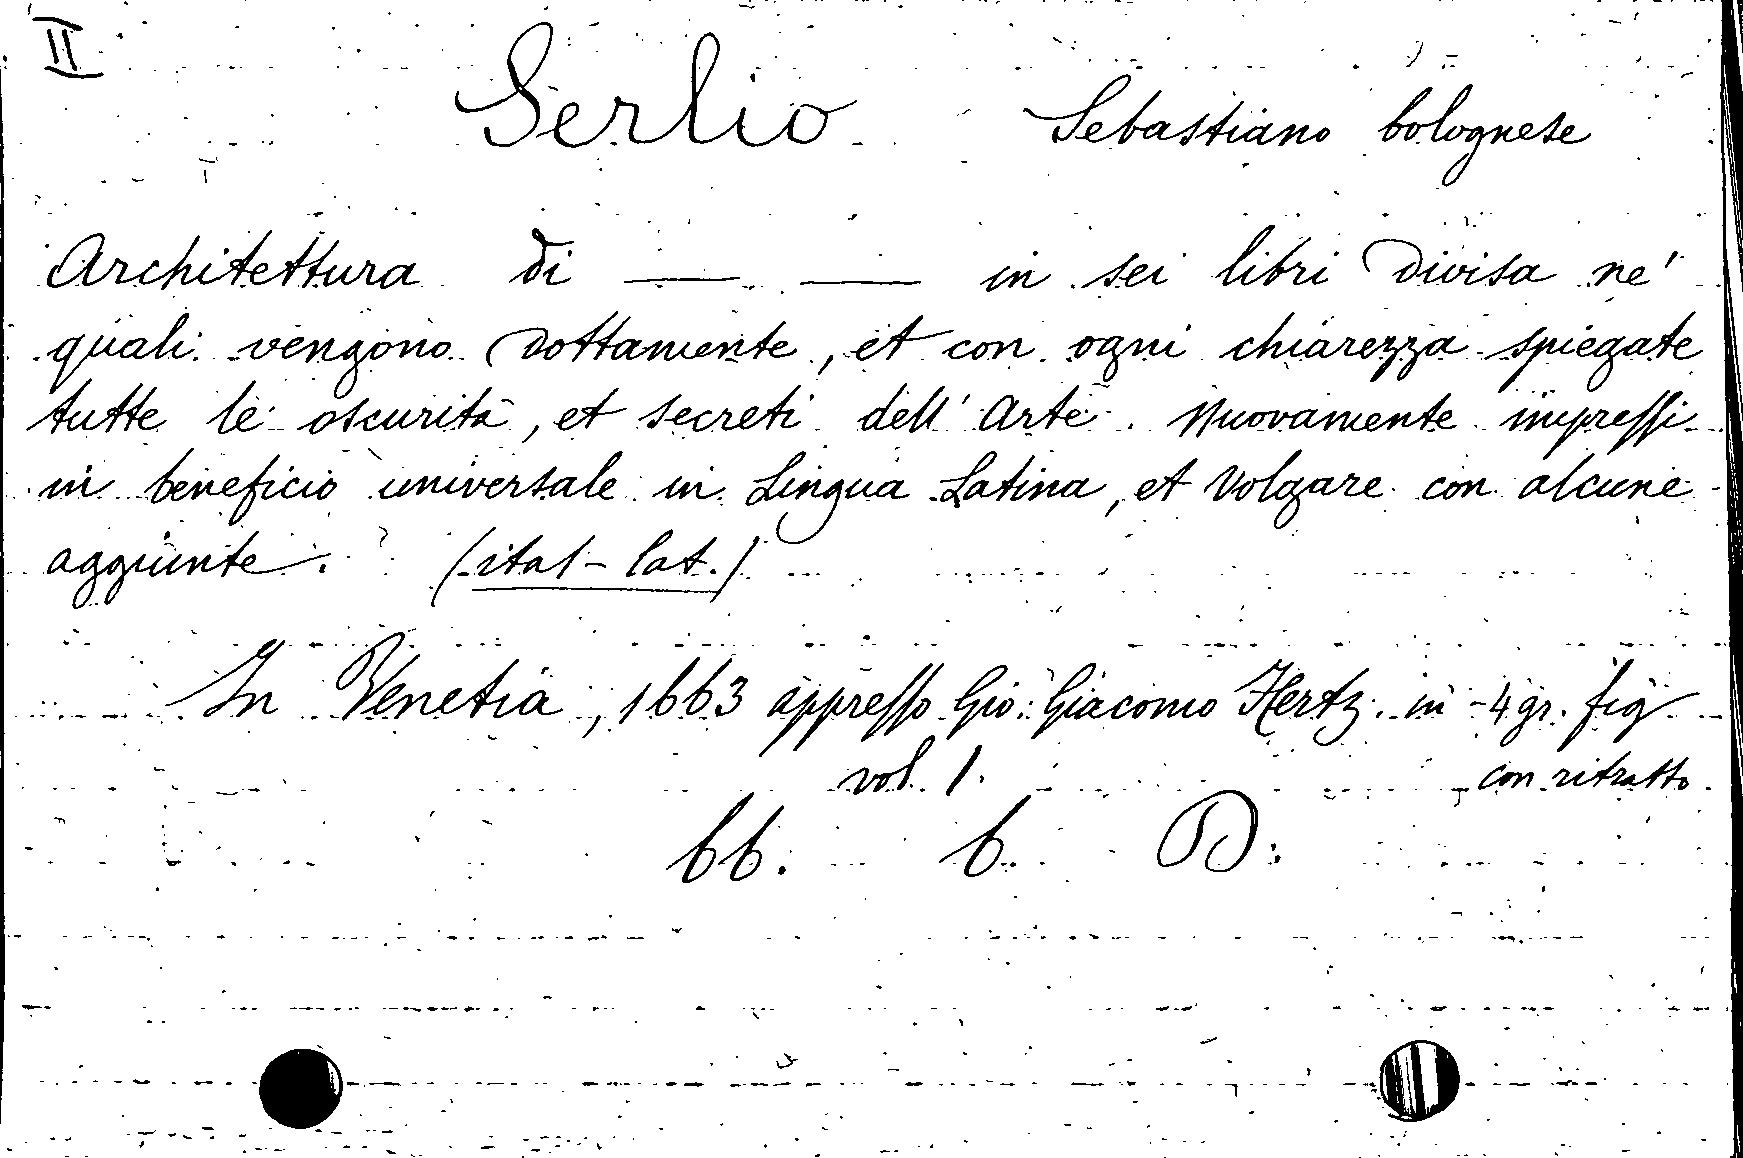 II
Serlio Sebastiano bolognese
Architettura di —— —— in sei libri divisa ne'
quali vengono dottamente, et con ogni chiarezza spiegate
tutte le oscurità, et secreti dell' Arte. Nuovamente impressi
in beneficio universale in Lingua Latina, et Volgare con alcune
aggiunte. (ital-lat.)
In Venetia, 1663 appresso Gio: Giacomo Hertz. in-4 gr. fig
vol. 1. con ritratto
bb. b. D.